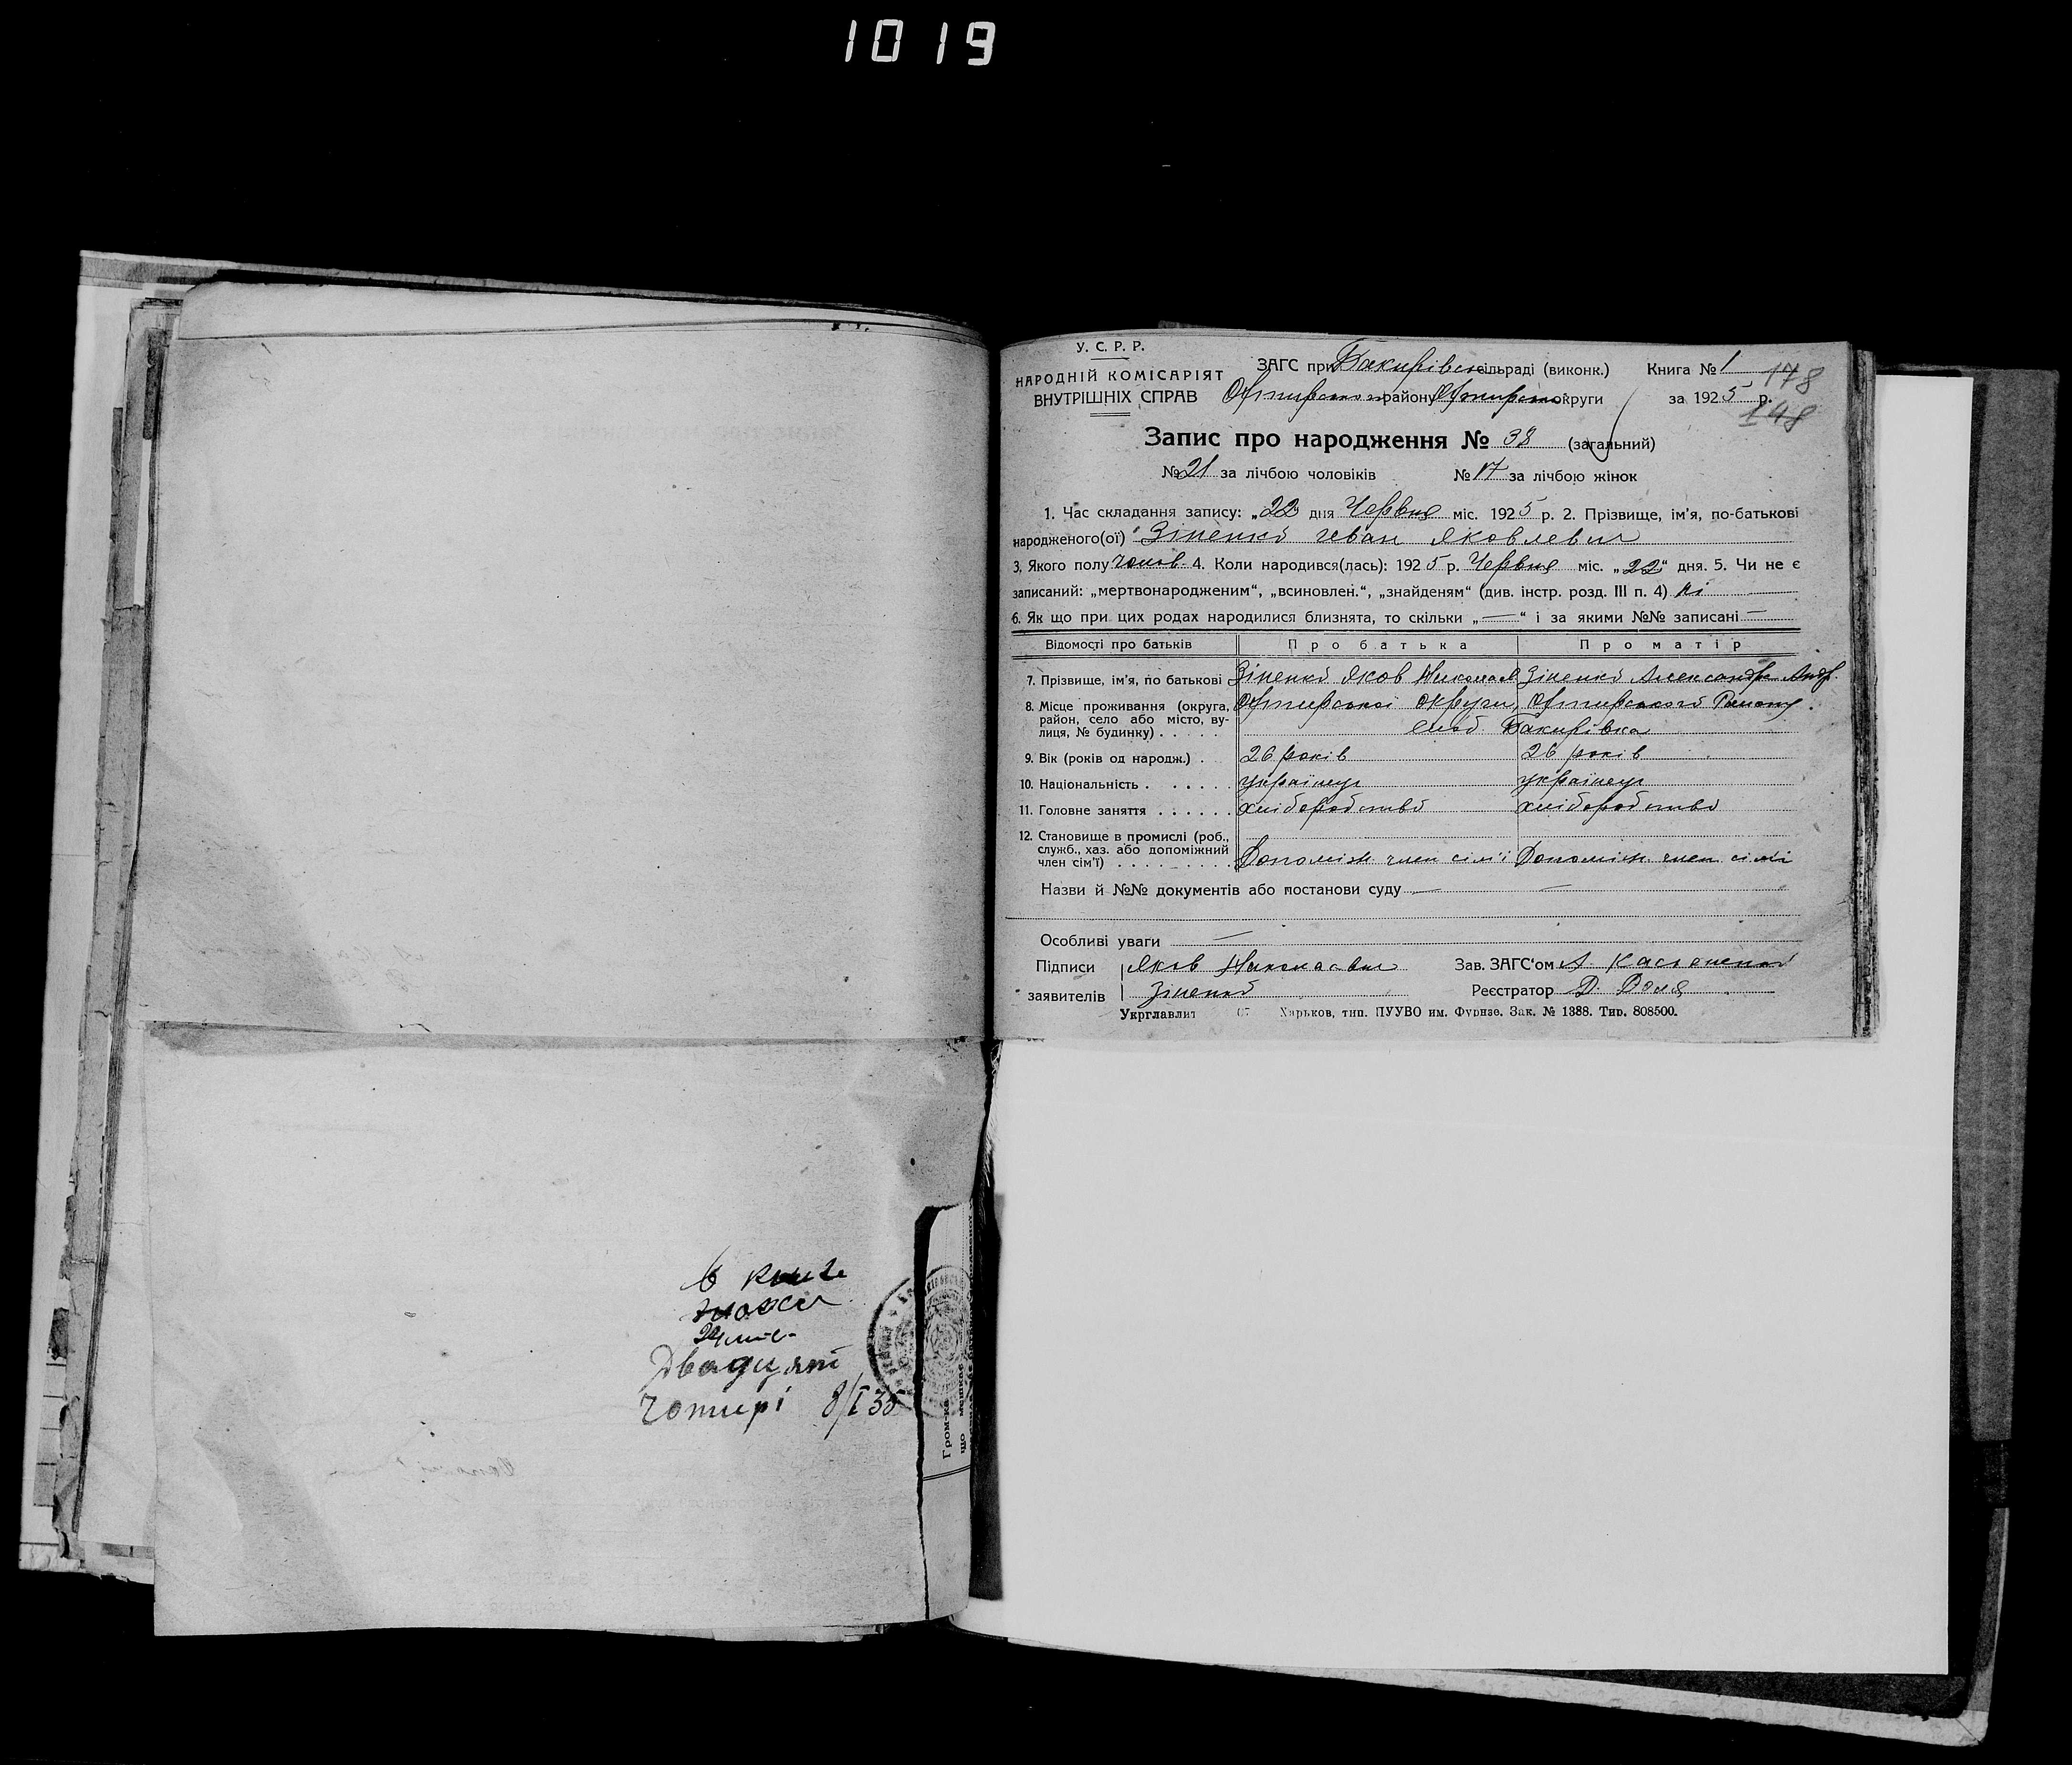 1019
У. С. Р. Р.
НАРОДНІЙ КОМІСАРІЯТ
ВНУТРІШНІХ СПРАВ
ЗАГС при Бакирівс сільраді (виконк.) Книга № 1
району округи за 1925 р.
178
148
Запис про народження № 38 (загальний)
№ 21 за лічбою чоловіків № 17 за лічбою жінок
1. Час складання запису: „22 дня Червня міс. 1925 р. 2. Прізвище, ім’я, по-батькові
народженого(ої) Зіненко Іван Яковлевич
3. Якого полу чолов. 4. Коли народився(лась): 1925 р. Червня міс. „22“ дня. 5. Чи не є
записаний: „мертвонародженим“, „всиновлен.“, „знайденям“ (див. інстр. розд. III п. 4) ні
6. Як що при цих родах народилися близнята, то скільки „—“ і за якими №№ записані —
Відомості про батьків Про батька Про матір
7. Прізвище, ім’я, по батькові Зіненко Яков Николаев Зіненко Александр. Андр.
8. Місце проживання (округа, район, село або місто, вулиця, № будинку) . . . . . Округи, Району
слоб. Бакирівка
9. Вік (років од народж.) . 26 років 26 років
10. Національність . . . . . українец українец
11. Головне заняття . . . . . . хліборобство хліборобство
12. Становище в промислі (роб.,
служб., хаз. або допоміжний
член сім’ї) . . . . . . . . . Допоміж. член сім'ї Допоміж. член сім'ї
Назви й №№ документів або постанови суду — —
Особливі уваги —
Підписи Яков Николаевич Зав. ЗАГС‘ом А.
заявителів Зіненко Реєстратор Д.
Укрглавліт 07 Харьков, тип. ПУУВО им. Фрунзе. Зак. № 1388. Тир. 808500.
В книге
Двадцят
Чотирі 8/I 35
Гром-ка
що мешкає